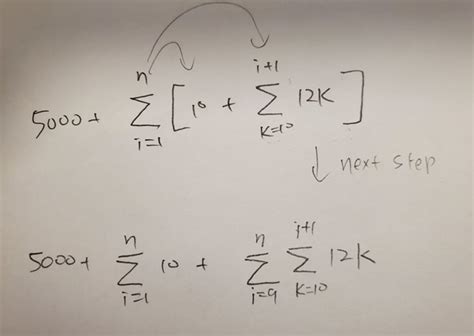 5000 + \sum_{i=1}^{n} [ 10 + \sum_{k=10}^{i+1} 12k ]
↓ next step
5000 + \sum_{i=1}^{n} 10 + \sum_{i=9}^{n} \sum_{k=10}^{i+1} 12k